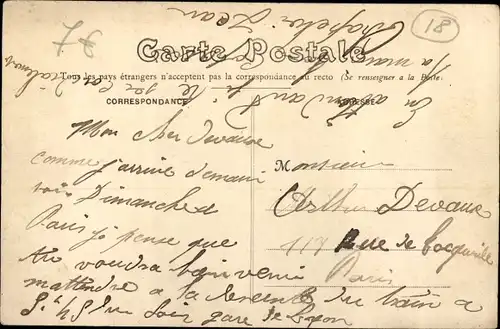 18
Carte Postale
Tous les pays étrangers n'acceptent pas la correspondance au recto (Se renseigner a la Poste)
CORRESPONDANCE
ADRESSE
Mon cher Devaux
comme j'arrive demain
soir Dimanche a
Paris je pense que
tu voudra bien venir
m'attendre a la descente du train a
du soir gare de Lyon
Monsieur
Arthur Devaux
117 Rue de
Paris
En attendant
la main
Jean